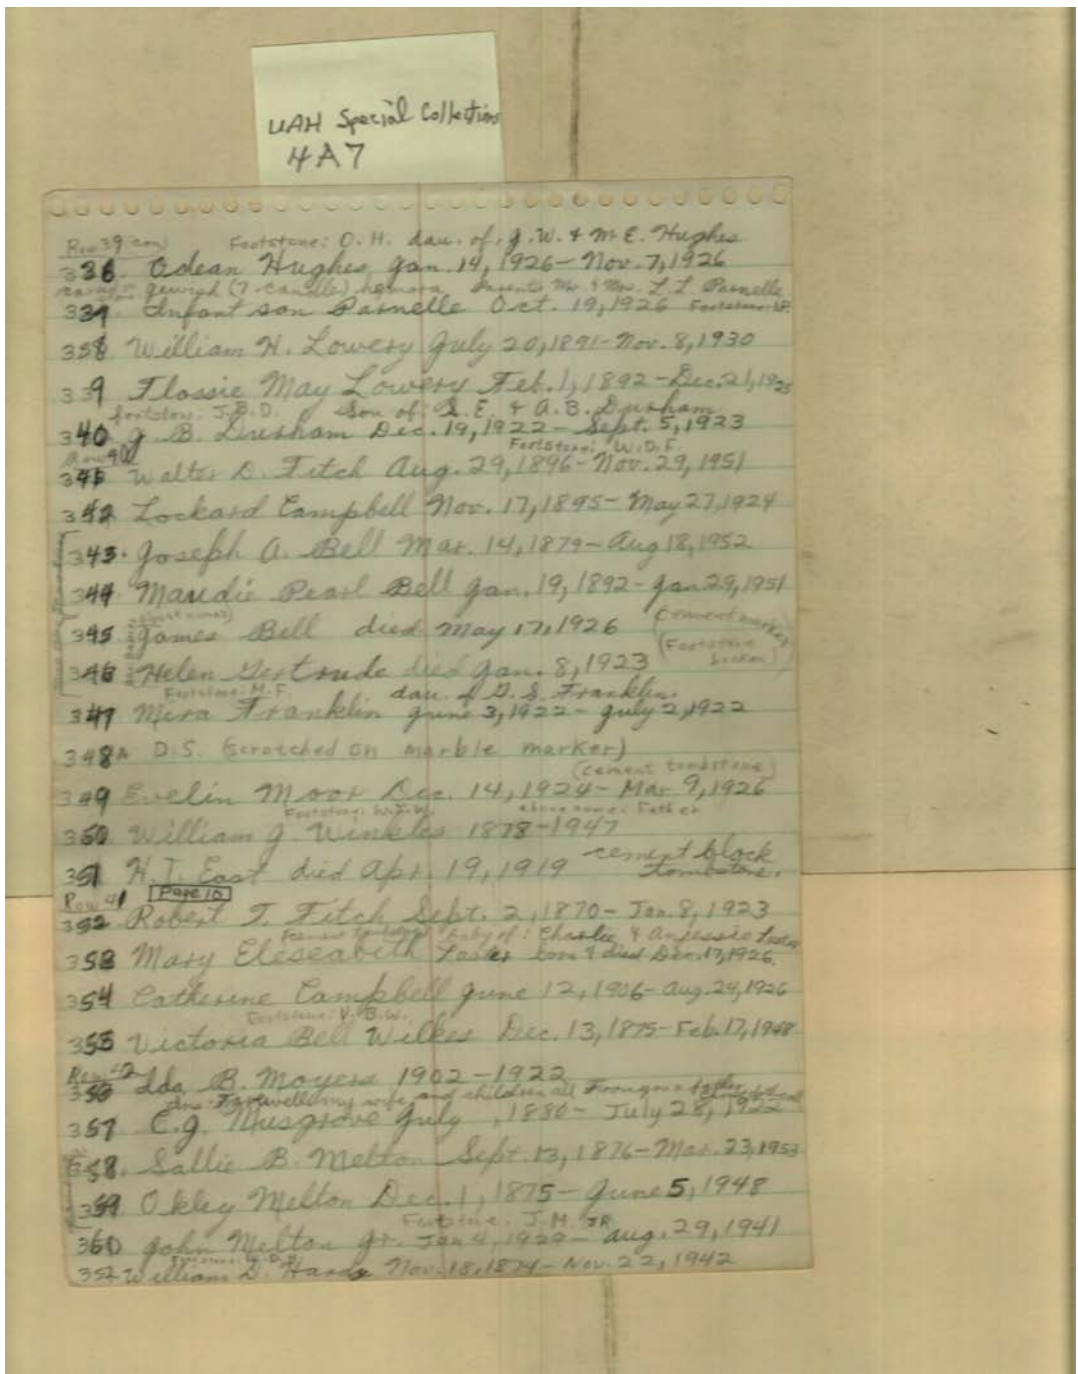 UAH Special Collections
4A7
Row 39 (con) Footstone: O. H. dau. of: J. W. & M. E. Hughes
336. Odean Hughes, Jan. 14, 1926 – Nov. 7, 1926
Jewish (7-candle) parents Mr. & Mrs. L. L. Parnelle
337. Infant son Parnelle Oct. 19, 1926 Footstone:
338 William H. Lowery July 20, 1891 – Nov. 8, 1930
339 Flossie May Lowery Feb. 1, 1892 – Dec. 21, 1925
footstone: J.B.D. Son of: S. E. & A. B. Durham
340 J. B. Durham Dec. 19, 1922 – Sept. 5, 1923
Row 40 Footstone: W. D. F.
341 Walter D. Fitch Aug. 29, 1896 – Nov. 29, 1951
342 Lockard Campbell Nov. 17, 1895 – May 27, 1924
343. Joseph A. Bell Mar. 14, 1879 – Aug 18, 1952
344 Maudie Pearl Bell Jan. 19, 1892 – Jan 29, 1951
345 James Bell died May 17, 1926 (cement marker
(Footstone broken)
346 Helen Gertrude died Jan. 8, 1923
Footstone: M. F. dau. of G. S. Franklin
347 Mira Franklin June 3, 1922 – July 2, 1922
348A D.S. (scratched on marble marker)
(cement tombstone)
349 Evelin Moor Dec. 14, 1924 – Mar 9, 1926
Footstone: W. J. W. above name: Father
350. William J. Winkles 1878–1947
351 H. T. East died Apr. 19, 1919 cement block
tombstone.
Row 41 Page 10
352 Robert T. Fitch Sept. 2, 1870 – Jan. 8, 1923
baby of: Charlie & Anjessie Laster
353 Mary Eleseabeth Laster born & died Dec. 17, 1926.
354 Catherine Campbell June 12, 1906 – Aug. 29, 1926
Footstone: V. B. W.
355 Victoria Bell Wilkes Dec. 13, 1875 – Feb. 17, 1948
Row 42
356 Ida B. Moyers 1902 – 1922
Ins: Farewell my wife and children all From you a father
357 C. J. Musgrove July , 1880 – July 28, 1922
358. Sallie B. Melton Sept. 13, 1876 – Mar. 23, 1953
359 Okley Melton Dec. 1, 1875 – June 5, 1948
Footstone: J. M. JR
360 John Melton Jr. Jan 4, 1929 – Aug. 29, 1941
Footstone:
William D. Hardy Nov. 18, 1874 – Nov. 22, 1942